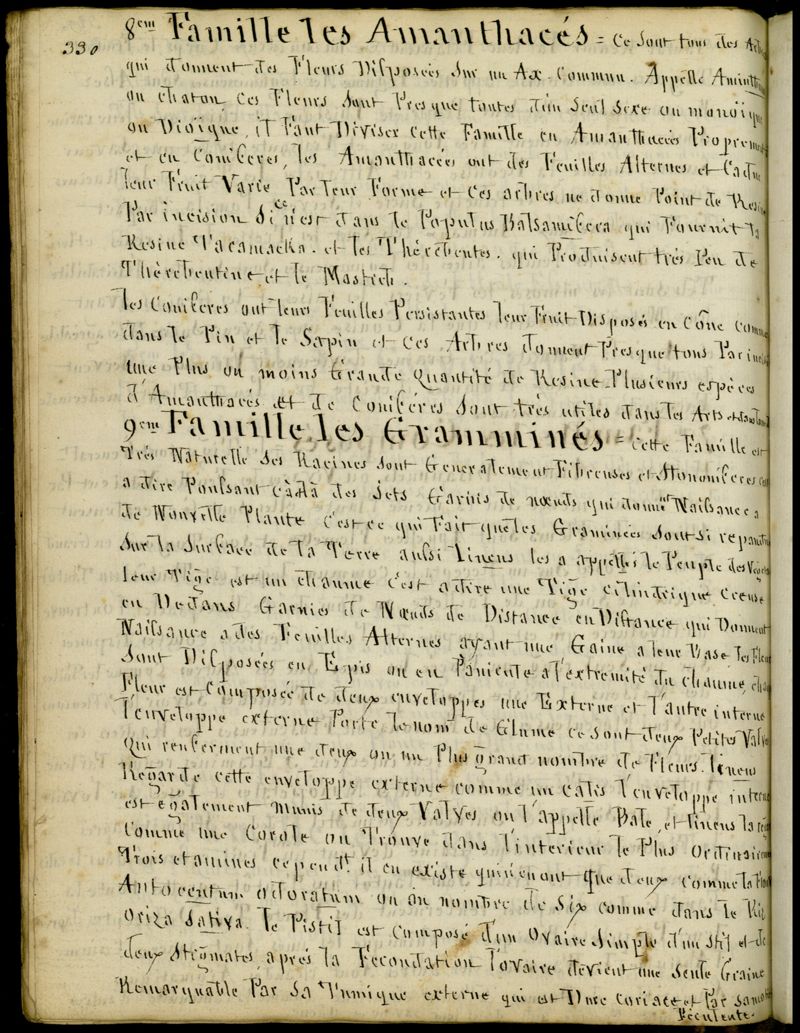 330
8em Famille les Amanthacés = Ce sont tous des
qui donnent des Fleurs Disposées sur un Ax. Commun. Appelle
ou chaton, ces Fleurs sont Presque toutes d'un seul sexe ou
ou Dioique, il Faut Diviser cette Famille en Amanthacés
et en Coniferes, les Amanthacées ont des Feuilles Alternes et
leur Fruit Varie Par leur Forme et ces arbres ne donne Point de
Par incision si ce n'est dans le Populus Balsamifera qui Fournit la
Resine Tacamacka. et les Thérébentes. qui Produisent trés Peu de
Thérébentine et le Mastich.
les Coniferes ont leurs Feuilles Persistantes leur Fruit Disposé en Cône
dans le Pin et le Sapin et ces Arbres donnent Presque tous Par
une Plus ou moins Grande Quantité de Resine. Plusieurs espèces
d'Amanthacés et de Coniféres sont trés utiles dans les Arts
9em Famille les Gramminés = cette Famille est
Trés Naturelle ses Racines sont Generalement Fibreuses et
a dire Poussant çà & là des jets Garnis de nœuds qui donne Naissance a
de Nouvelle Plante c'est ce qui Fait que les Graminées sont si
sur la surface de la Terre aussi Lineus les a appellés le Peuple des
leur Tige est un chaume c'est a dire une Tige cilindrique Creuse
en Dedans Garnies de Nœuds de Distance en Distance qui Donnent
Naissance a des Feuilles Alternes ayant une Gaine a leur Base les
sont Disposées en Epis ou en Panicule a l'extremité du chaume
Fleur est Composée de deux enveloppes une Externe et l'autre interne
l'enveloppe externe Porte le nom de Glume ce sont deux Petites
Qui renferment une deux ou un Plus grand nombre de Fleurs. lineus
Regarde cette enveloppe externe comme un Calis l'enveloppe interne
est egalement munis de deux Valves on l'appelle Bale, et lineus la
Comme une Corole on Trouve dans l'interieur le Plus
Trois etamines cependt il en existe qui n'en ont que deux comme
Antocentum odoratum ou au nombre de Six comme dans le Ris
Oriza Sativa. le Pistil est Composé d'un Ovaire simple d'un stil et de
deux Stigmates, aprés la Fecondation l'ovaire devient une seule Graine
Remarquable Par sa Tunique externe qui est Dure Coriace et Par